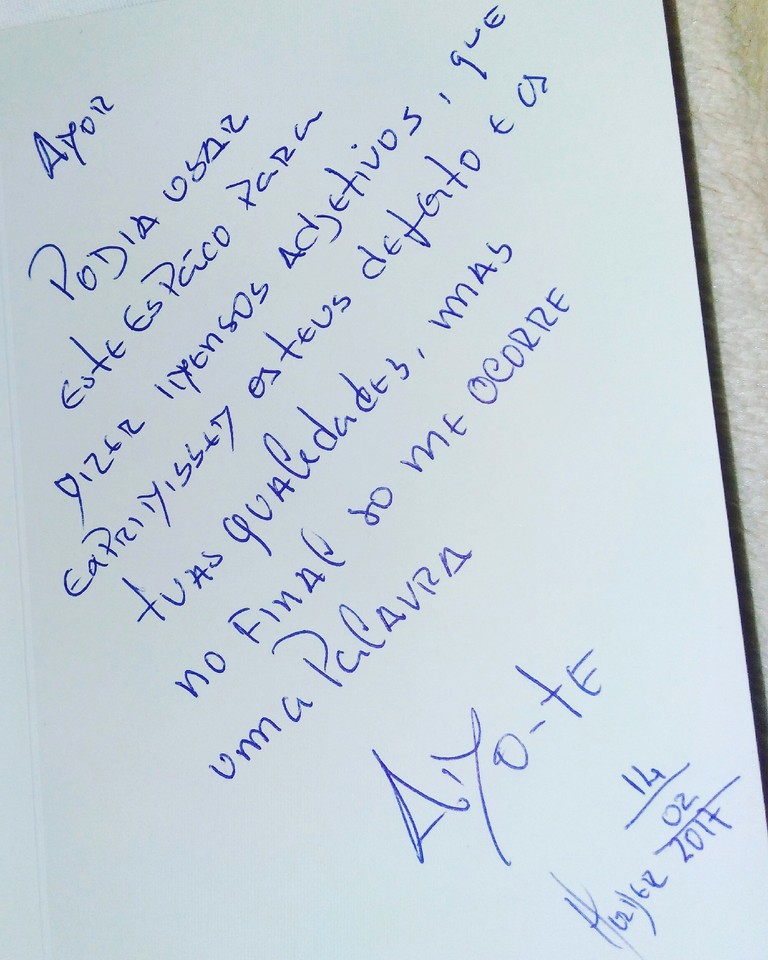 AMOR
PODIA USAR
ESTE ESPAÇO PARA
DIZER IMENSOS ADJETIVOS, QUE
EXPRIMISSEM OS TEUS DEFEITO E AS
TUAS QUALIDADES, MAS
NO FINAL SO ME OCORRE
UMA PALAVRA
AMO-TE
14
02
2017